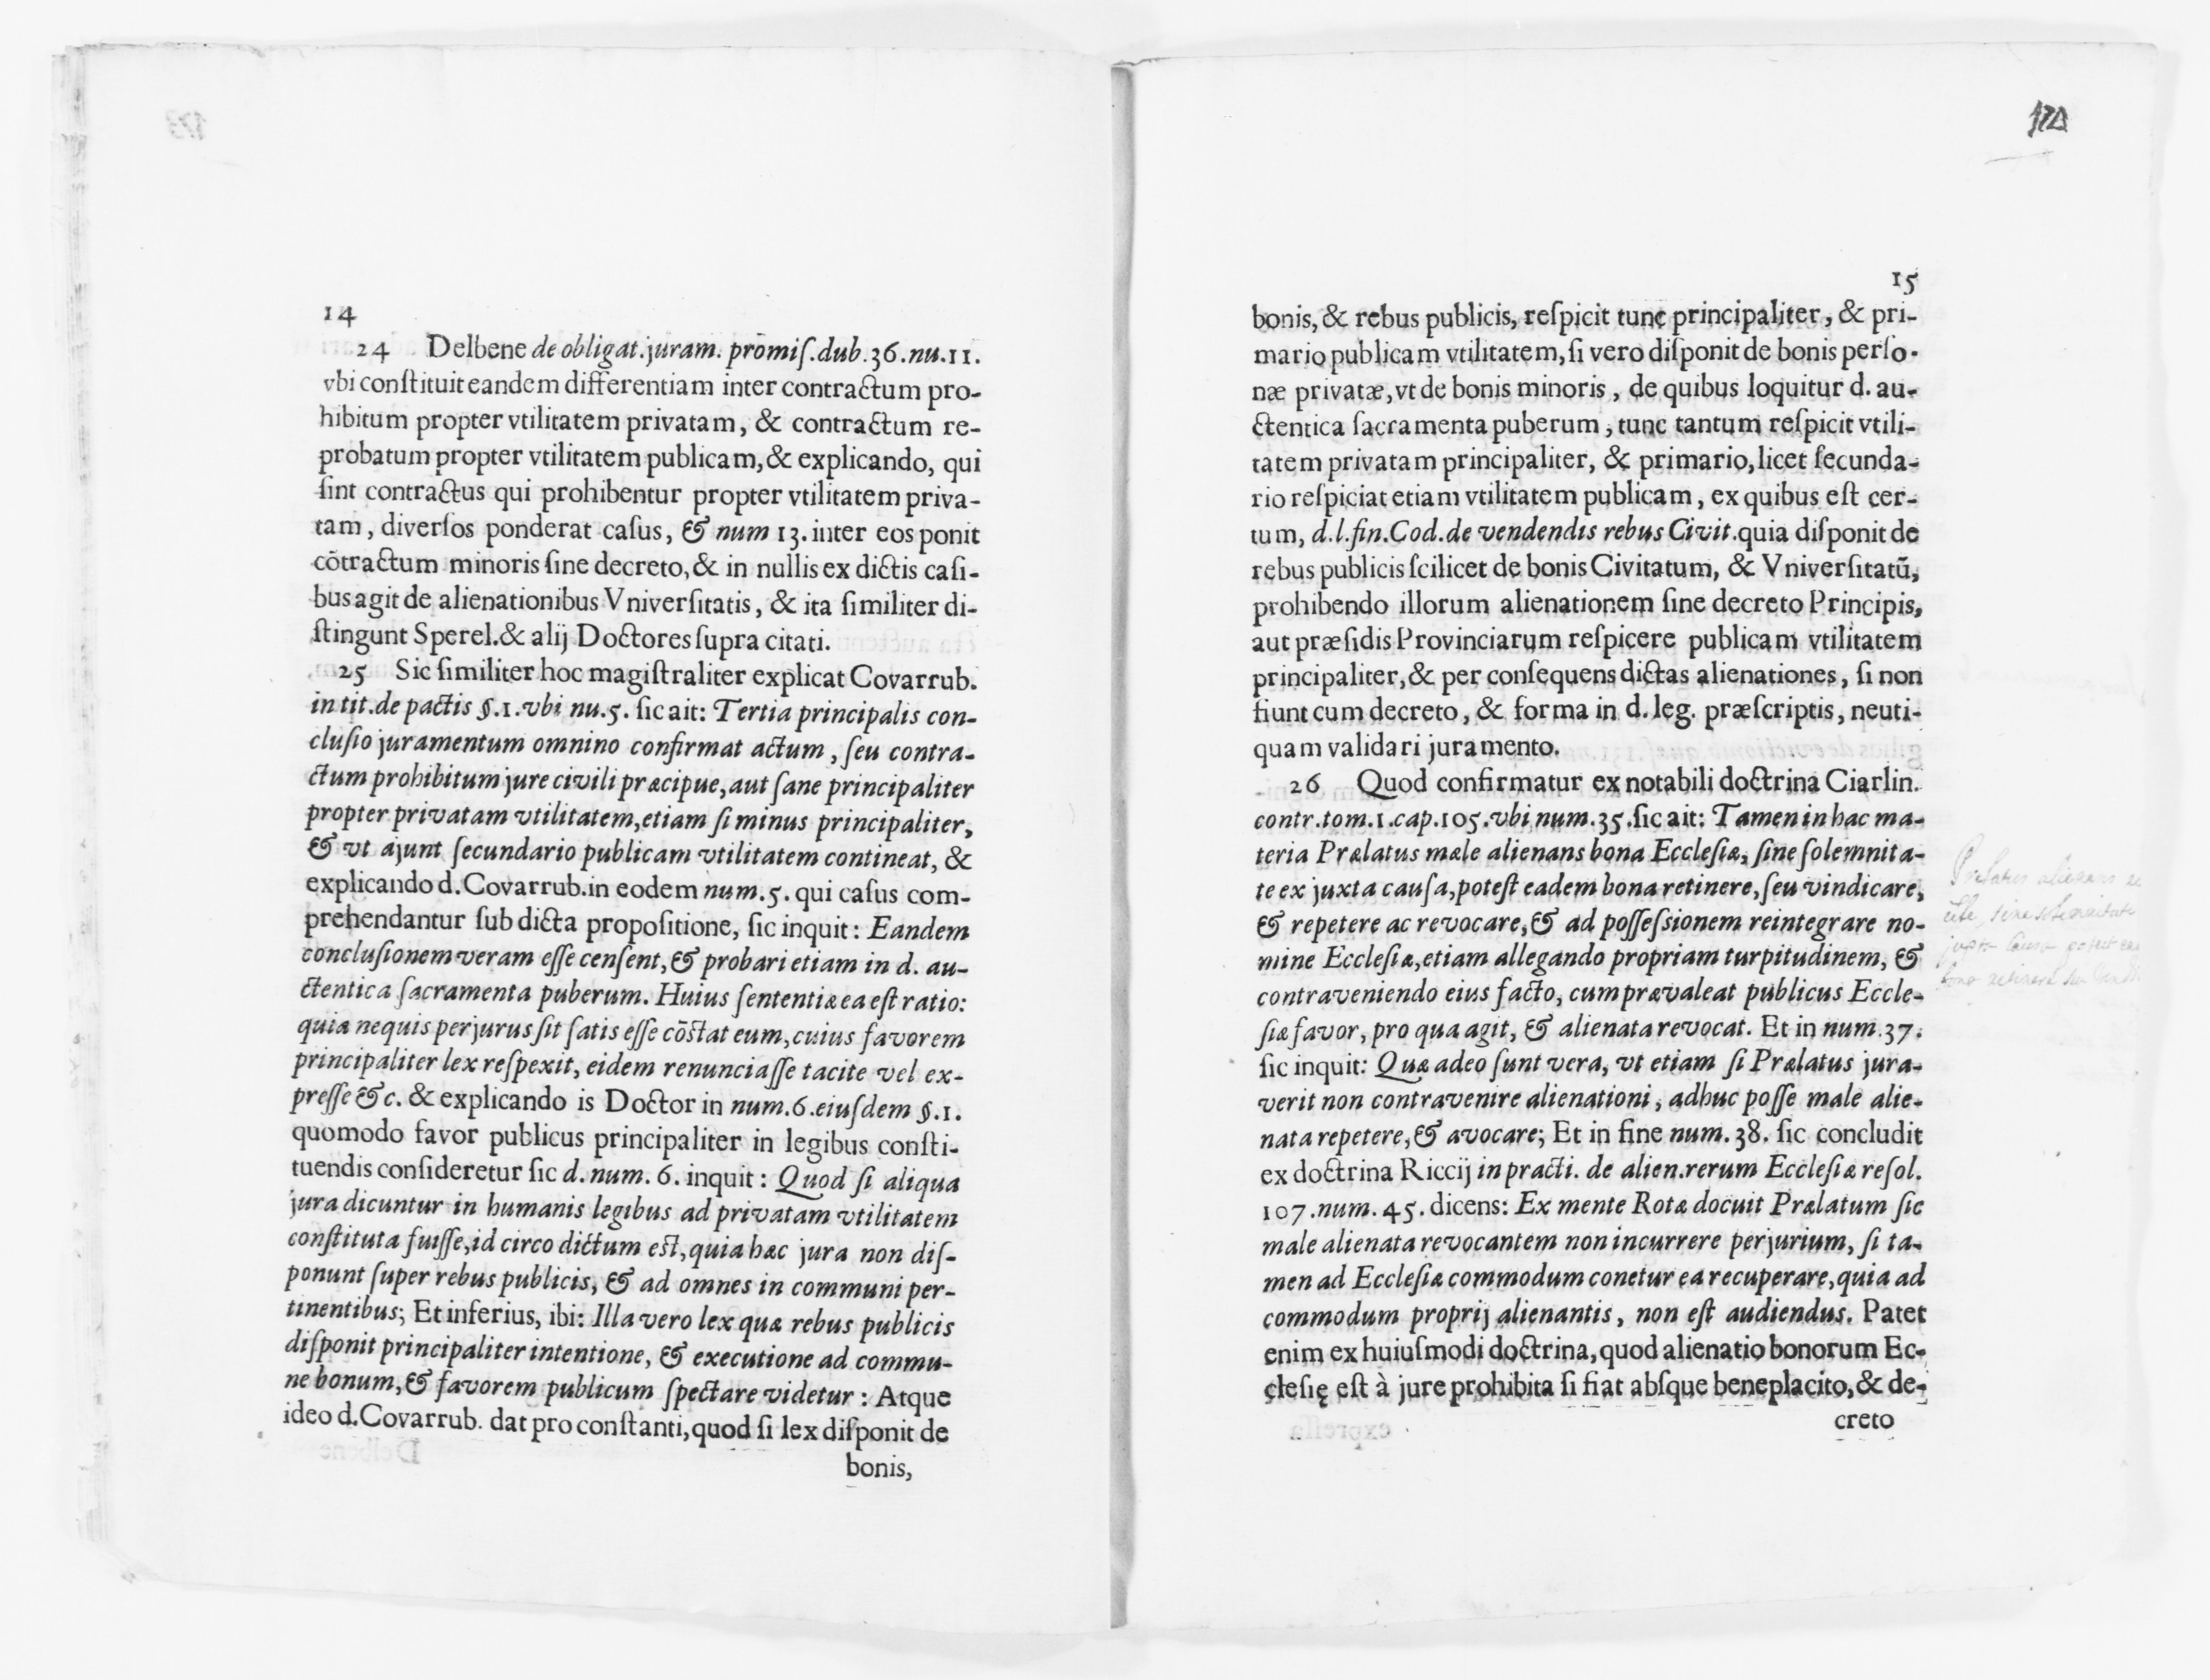 14
24 Delbene de obligat. juram. promiſ. dub. 36. nu. 11.
vbi conſtituit eandem differentiam inter contractum pro-
hibitum propter vtilitatem privatam, & contractum re-
probatum propter vtilitatem publicam, & explicando, qui
ſint contractus qui prohibentur propter vtilitatem priva-
tam, diverſos ponderat caſus, & num 13. inter eos ponit
cõtractum minoris ſine decreto, & in nullis ex dictis caſi-
bus agit de alienationibus Vniverſitatis, & ita ſimiliter di-
ſtingunt Sperel. & alij Doctores ſupra citati.
25 Sic ſimiliter hoc magiſtraliter explicat Covarrub.
in tit. de pactis §. 1. vbi nu. 5. ſic ait: Tertia principalis con-
cluſio juramentum omnino confirmat actum, ſeu contra-
ctum prohibitum jure civili præcipue, aut ſane principaliter
propter privatam vtilitatem, etiam ſi minus principaliter,
& vt ajunt ſecundario publicam vtilitatem contineat, &
explicando d. Covarrub. in eodem num. 5. qui caſus com-
prehendantur ſub dicta propoſitione, ſic inquit: Eandem
concluſionem veram eſſe cenſent, & probari etiam in d. au-
ctentica ſacramenta puberum. Huius ſententiæ ea eſt ratio:
quia nequis perjurus ſit ſatis eſſe cõſtat eum, cuius favorem
principaliter lex reſpexit, eidem renunciaſſe tacite vel ex-
preſſe &c. & explicando is Doctor in num. 6. eiuſdem §. 1.
quomodo favor publicus principaliter in legibus conſti-
tuendis conſideretur ſic d. num. 6. inquit: Quod ſi aliqua
jura dicuntur in humanis legibus ad privatam vtilitatem
conſtituta fuiſſe, id circo dictum eſt, quia hæc jura non diſ-
ponunt ſuper rebus publicis, & ad omnes in communi per-
tinentibus; Et inferius, ibi: Illa vero lex quæ rebus publicis
diſponit principaliter intentione, & executione ad commu-
ne bonum, & favorem publicum ſpectare videtur: Atque
ideo d. Covarrub. dat pro conſtanti, quod ſi lex diſponit de
bonis,
15
bonis, & rebus publicis, reſpicit tunc principaliter, & pri-
mario publicam vtilitatem, ſi vero diſponit de bonis perſo-
næ privatæ, vt de bonis minoris, de quibus loquitur d. au-
ctentica ſacramenta puberum, tunc tantum reſpicit vtili-
tatem privatam principaliter, & primario, licet ſecunda-
rio reſpiciat etiam vtilitatem publicam, ex quibus eſt cer-
tum, d. l. fin. Cod. de vendendis rebus Civit. quia diſponit de
rebus publicis ſcilicet de bonis Civitatum, & Vniverſitatū,
prohibendo illorum alienationem ſine decreto Principis,
aut præſidis Provinciarum reſpicere publicam vtilitatem
principaliter, & per conſequens dictas alienationes, ſi non
fiunt cum decreto, & forma in d. leg. præſcriptis, neuti-
quam validari juramento.
26 Quod confirmatur ex notabili doctrina Ciarlin.
contr. tom. 1. cap. 105. vbi num. 35. ſic ait: Tamen in hac ma-
teria Prælatus male alienans bona Eccleſiæ, ſine ſolemnita-
te ex juxta cauſa, poteſt eadem bona retinere, ſeu vindicare,
& repetere ac revocare, & ad poſſeſsionem reintegrare no-
mine Eccleſiæ, etiam allegando propriam turpitudinem, &
contraveniendo eius facto, cum prævaleat publicus Eccle-
ſiæ favor, pro qua agit, & alienata revocat. Et in num. 37.
ſic inquit: Quæ adeo ſunt vera, vt etiam ſi Prælatus jura-
verit non contravenire alienationi, adhuc poſſe male alie-
nata repetere, & avocare; Et in fine num. 38. ſic concludit
ex doctrina Riccij in practi. de alien. rerum Eccleſiæ reſol.
107. num. 45. dicens: Ex mente Rotæ docuit Prælatum ſic
male alienata revocantem non incurrere perjurium, ſi ta-
men ad Eccleſiæ commodum conetur ea recuperare, quia ad
commodum proprij alienantis, non eſt audiendus. Patet
enim ex huiuſmodi doctrina, quod alienatio bonorum Ec-
cleſię eſt à jure prohibita ſi fiat abſque beneplacito, & de-
creto
Prelatus alienans
sine solemnitate